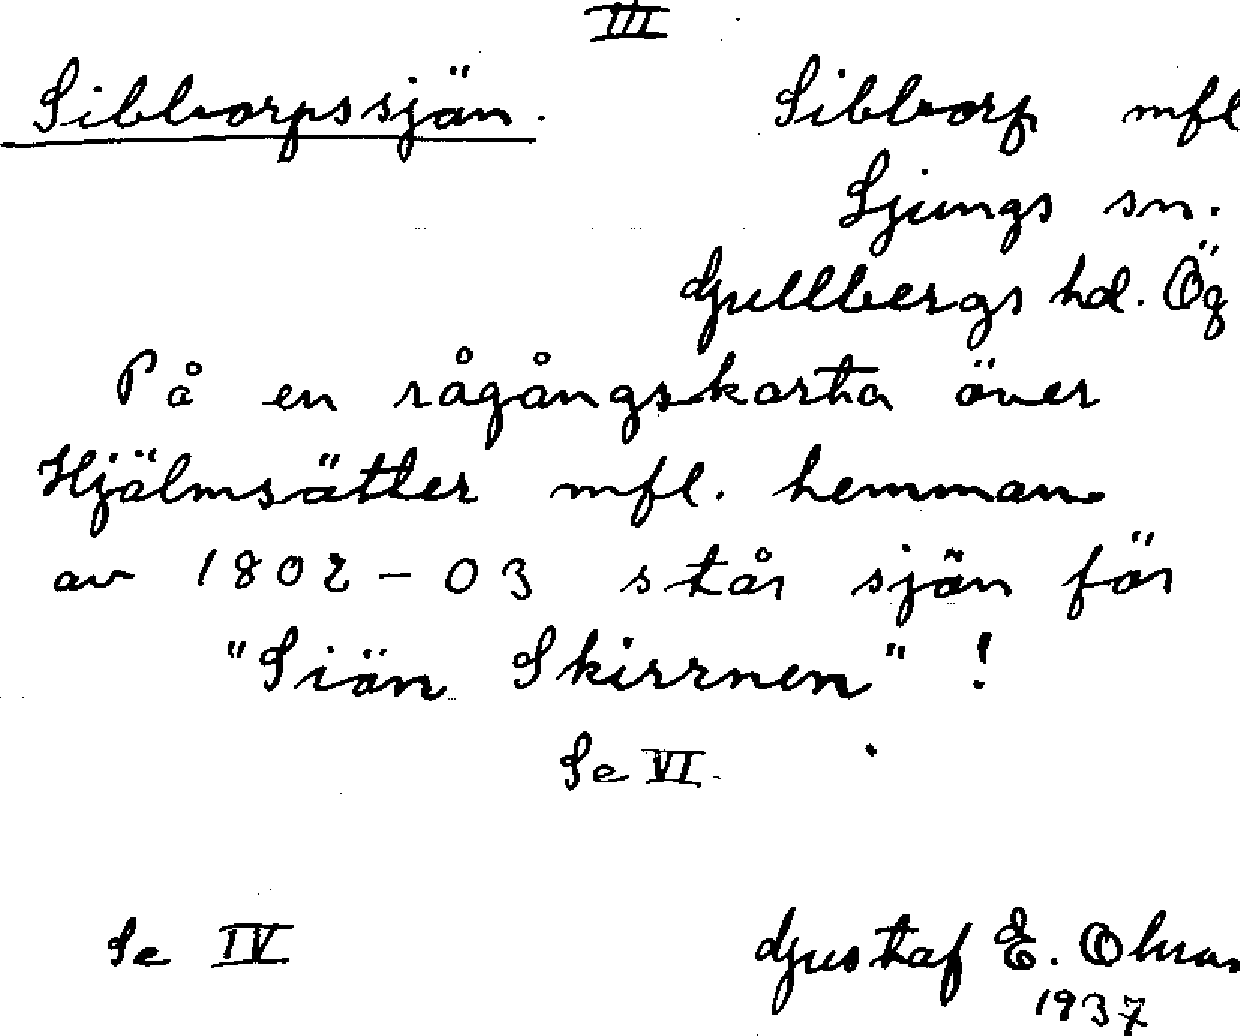 III
Sibborpssjön. Sibborp mfl
Ljungs sn.
Gullbergs hd. Ög
På en rågångskarta över
Hjälmsätter mfl. hemman
av 1802-03 står sjön för
"Siön Skirrnen" !
Se VI.
Se IV Gustaf E.
1937